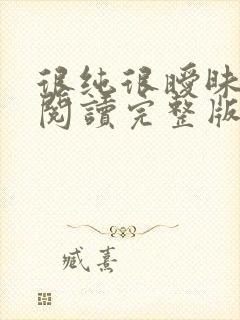 很纯很曖昧
閱讀完整版
臧熹